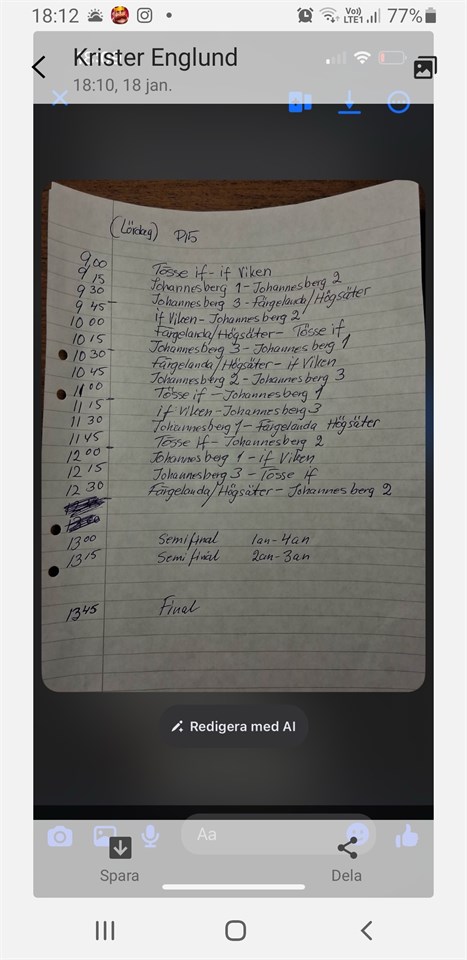 18:12 Voi) LTE1 77%
Krister Englund
18:10, 18 jan.
(Lördag) P15
9,00 Tösse if - if Viken
9 15 Johannesberg 1 - Johannesberg 2
9 30 Johannesberg 3 - Färgelanda/Högsäter
9 45 if Viken - Johannesberg 2
10 00 Färgelanda/Högsäter - Tösse if
10 15 Johannesberg 3 - Johannesberg 1
10 30 Färgelanda/Högsäter - if Viken
10 45 Johannesberg 2 - Johannesberg 3
11 00 Tösse if - Johannesberg 1
11 15 if Viken - Johannesberg 3
11 30 Johannesberg 1 - Färgelanda Högsäter
11 45 Tösse If - Johannesberg 2
12 00 Johannesberg 1 - if Viken
12 15 Johannesberg 3 - Tösse if
12 30 Färgelanda/Högsäter - Johannesberg 2
13 00 Semifinal 1an - 4an
13 15 Semifinal 2an - 3an
13 45 Final
Redigera med AI
Aa
Spara Dela